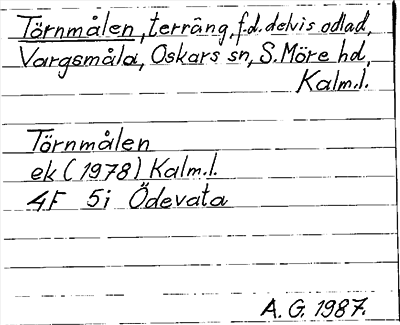 Törnmålen, terräng, f.d. delvis odlad,
Vargsmåla, Oskars sn, S. Möre hd,
Kalm.l.
Törnmålen
ek (1978) Kalm.l.
4F 5i Ödevata
A. G. 1987.